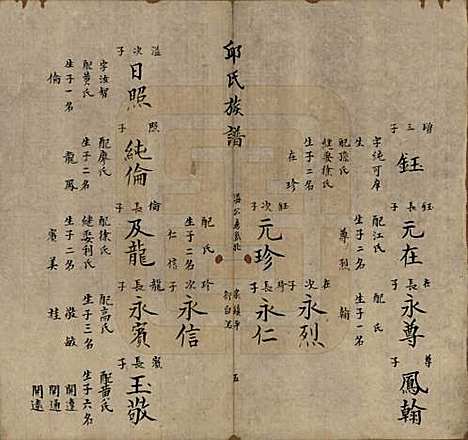 增三子 鈺
字純可庠生
配孫氏
繼娶徐氏
生子二名
在 珍
鈺長子 元在
配江氏
生子二名
尊 烈
在長子 永尊
翰
尊子 鳳翰
在次子 永烈
鈺次子 元珍
配 氏
生子二名
仁 信
珍長子 永仁
邱氏族譜
五
珍次子 永信
溢次子 日照
字汝智
配黃氏
生子一名
倫
照子 純倫
配廖氏
生子二名
龍 鳳
倫長子 及龍
配徐氏
繼娶利氏
生子二名
賓 美
龍長子 永賓
配高氏
生子三名
敬 敏
桂
賓長子 玉敬
配黃氏
生子六名
開達
開通
開遠